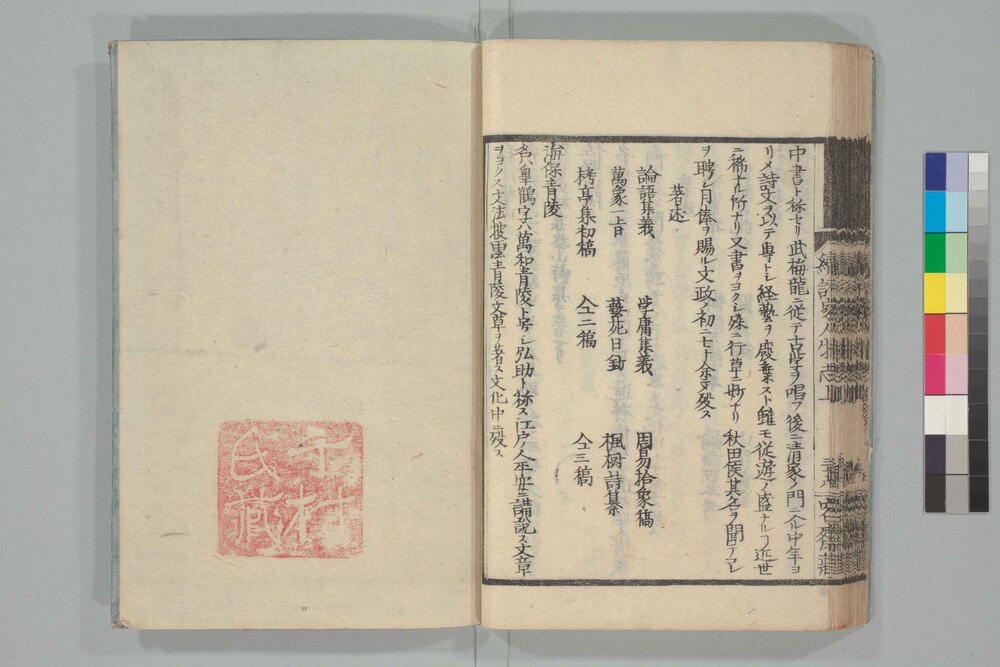 中書ト称セリ武梅龍ニ従テ古学ヲ唱フ後ニ清家ノ門ニ入ル中年ヨ
リメ詩文ヲ以テ専トシ経藝ヲ廃棄スト雖モ従遊ノ盛ナルヿ近世
ニ稀ナル所ナリ又書ヲヨクシ殊ニ行草ニ妙ナリ 秋田侯其名ヲ聞テコレ
ヲ聘シ月俸ヲ賜ル文政ノ初ニ七十余ニテ歿ス
著述
論語集義 学庸集義 周易拾象稿
萬象一旨 藝苑日鈔 楓樹詩纂
栲亭集初稿 仝二稿 仝三稿
海保青陵
名ハ皐鶴字ハ萬和青陵ト号シ弘助ト称ス江戸ノ人平安ニ講説ス文章
ヲヨクス文法披雲青陵文草ヲ著ス文化中ニ歿ス
続諸家人物志上
千村氏蔵